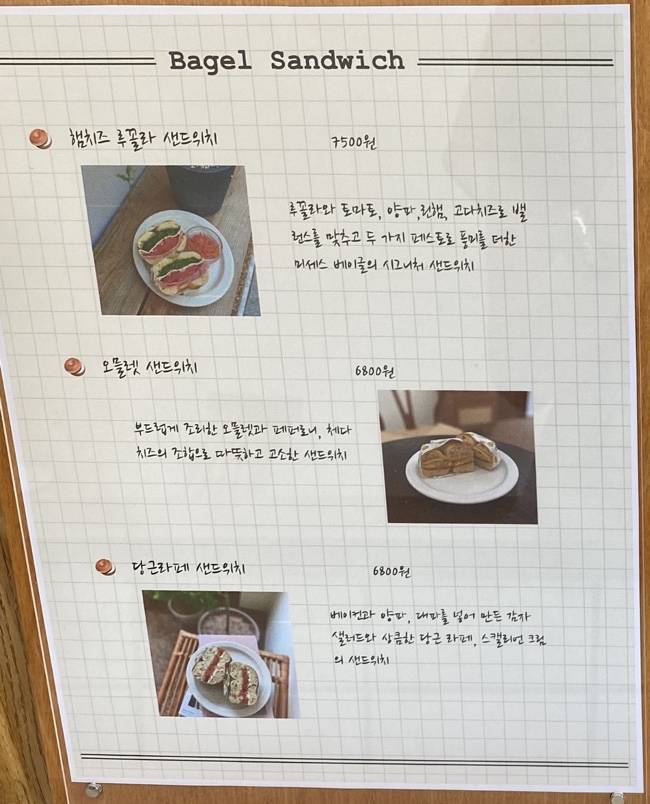 Bagel Sandwich
햄치즈 루꼴라 샌드위치 7500원
루꼴라와 토마토, 양파, 런햄, 고다치즈로 밸
런스를 맞추고 두 가지 페스토로 풍미를 더한
미세스 베이글의 시그니처 샌드위치
오믈렛 샌드위치 6800원
부드럽게 조리한 오믈렛과 페퍼로니, 체다
치즈의 조합으로 따뜻하고 고소한 샌드위치
당근라페 샌드위치 6800원
베이컨과 양파, 대파를 넣어 만든 감자
샐러드와 상큼한 당근 라페, 스캘리언 크림
의 샌드위치